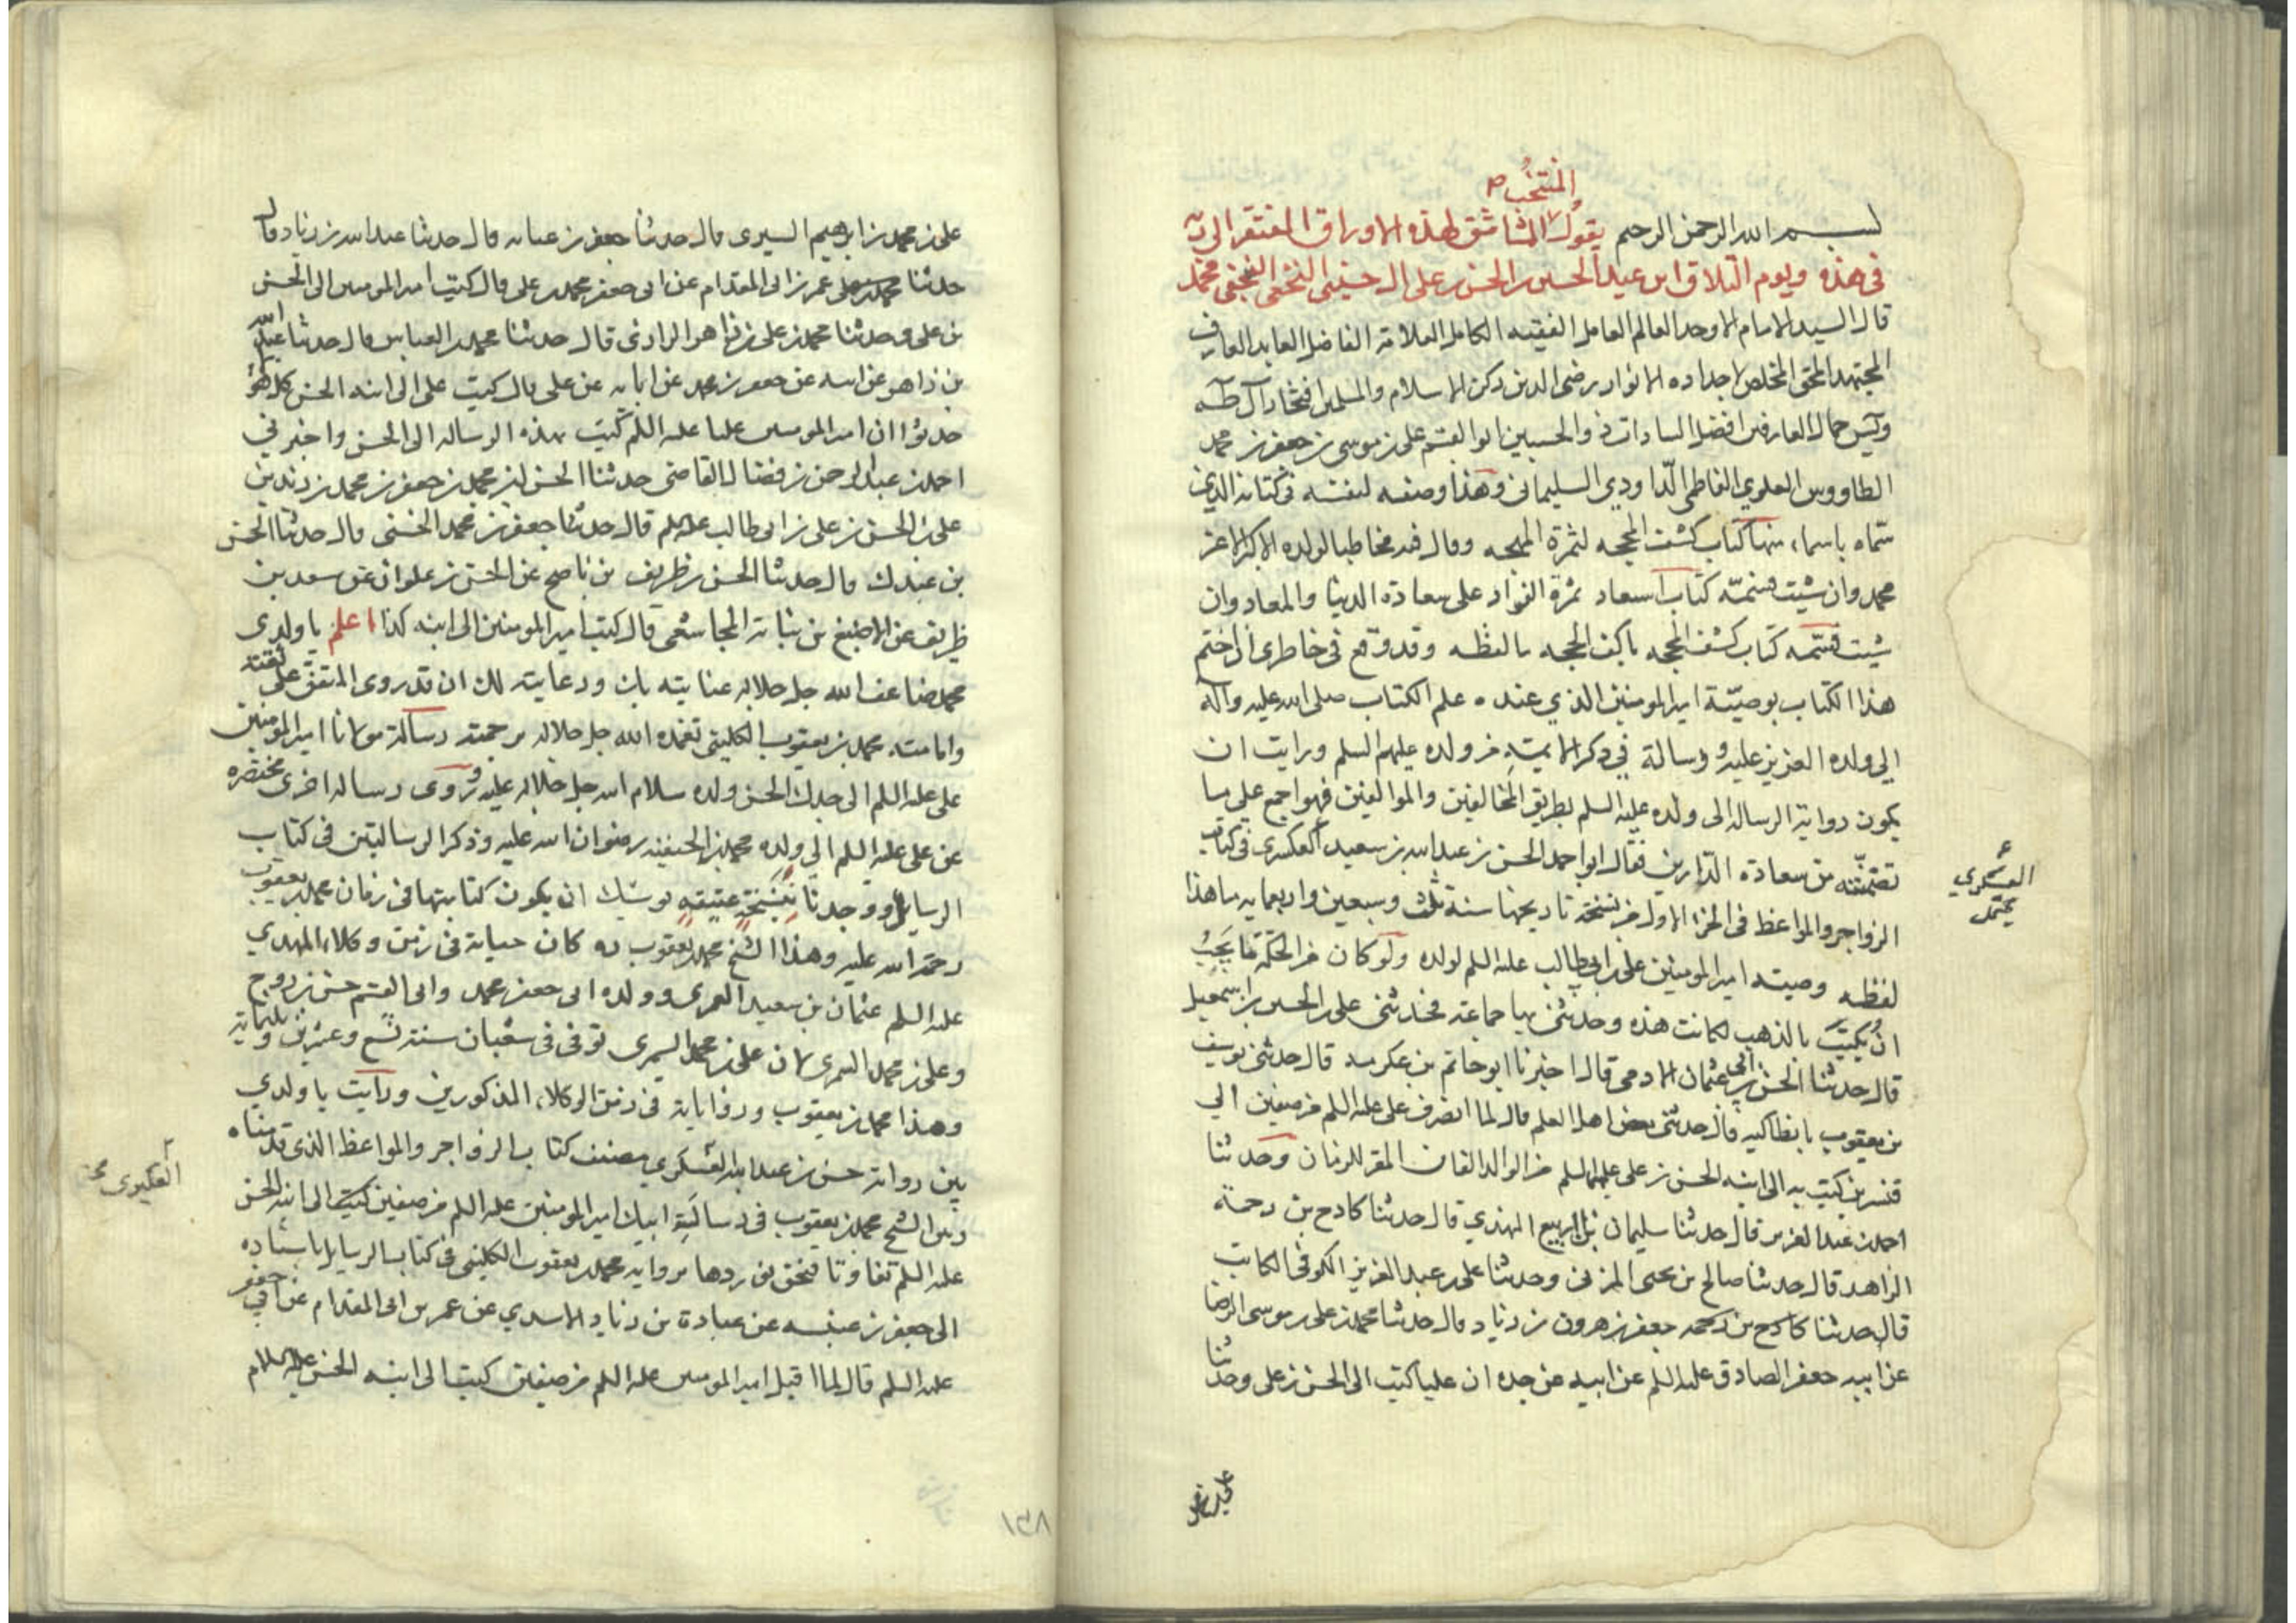 المنتخب ص
بسم الله الرحمن الرحيم يقول لهذه الاوراق المفتقر الى ربه
في هذه ويوم التلاق ابن عبد الحسين الحسن بن على ال حسيني النجفي محمد
قال السيد الامام الاوحد العالم العامل الفقيه الكامل العلامة الفاضل العابد العارف
المجتهد المحق المخلص اجداده الانوار رضى الدين ركن الاسلام والمسلمين افتخار آل طه
ويس جمال العارفين افضل السادات ذو الحسبين ابو القسم على بن موسى بن جعفر بن محمد
الطاووس العلوي الفاطمي الداودي السليماني وهذا وصفه لنفسه في كتابه الذي
سماه باسماء منها كتاب كشف المحجه لثمرة المهجه وقال فيه مخاطبا لولده الاكبر الاعز
محمد وان شيت فسمه كتاب اسعاد ثمرة الفواد على سعادة الدنيا والمعاد وان
شيت فسمه كتاب كشف المحجه باكف الحجه بالفظه وقد وقع في خاطري ان اختم
هذا الكتاب بوصية امير المومنين الذي عنده علم الكتاب صلى الله عليه وآله
الى ولده العزيز عليه ورسالة في ذكر الايمة من ولده عليهم السلم ورايت ان
يكون رواية الرساله الى ولده عليه السلم بطريق المخالفين والموالفين فهو اجمع على ما
تضمنته من سعادة الدارين فقال ابو احمد الحسن بن عبد الله بن سعيد العكسرى في كتاب
العسكري
يحتمل
الزواجر والمواعظ في الجزء الاول من نسخة تاريخها سنة ثلث وسبعين واربعمايه ما هذا
لفظه وصيته امير المومنين على بن ابي طالب عليه السلم لولده ولو كان من الحكمة ما يجب
ان يكتب بالذهب لكانت هذه وحدثني بها جماعة فحدثني على بن الحسين بن اسمعيل
قال حدثنا الحسن بن ابي عثمان الادمي قال اخبرنا ابو حاتم بن عكرمه قال حدثني يوسف
بن يعقوب بانطاكيه قال حدثني بعض اهل العلم قال لما انصرف على عليه السلم من صفين الى
قنسرين كتب به الى ابنه الحسن بن على عليهما السلم من الوالد الفان المقر للزمان وحدثنا
احمد بن عبد العزيز قال حدثنا سليمان بن الربيع النهدي قال حدثنا كادح بن رحمة
الزاهد قال حدثنا صالح بن يحيى المزنى وحدثنا على بن عبد العزيز الكوفي الكاتب
قال حدثنا كادح بن رحمه جعفر بن هرون بن زياد قال حدثنا محمد بن على بن موسى الرضا
عن ابيه جعفر الصادق عليه السلم عن ابيه عن جده ان عليا كتب الى الحسن بن على وحدثنا
على بن محمد بن ابرهيم السيري قال حدثنا جعفر بن عنبسه قال حدثنا عبد الله بن زياد قال
حدثنا عمر بن ابى المقدام عن ابى جعفر محمد بن على قال كتب امير المومنين الى الحسن
بن على وحدثنا محمد بن على بن زاهر الرازى قال حدثنا محمد بن العباس قال حدثنا عبد الله
بن زاهر عن ابيه عن جعفر بن محمد عن ابايه عن على قال كتب على الى ابنه الحسن كل هؤ
حدثوا ان امير المومنين عليا عليه السلم كتب بهذه الرساله الى الحسن واخبرني
احمد بن عبد الرحمن بن فضال القاضى حدثنا الحسن بن محمد بن جعفر بن محمد بن زيد بن
على بن الحسن بن على بن ابى طالب عليه السلم قال حدثنا جعفر بن محمد الحسنى قال حدثنا الحسن
بن عبدك قال حدثنا الحسن بن ظريف بن ناصح عن الحسن بن علوان عن سعد بن
ظريف عن الاصبغ بن نباتة المجاشعى قال كتب امير المومنين الى ابنه كذا اعلم يا ولدي
محمد ضاعف الله جل جلاله عنايته بك ورعايته لك ان قد روى المتفق على ثقته
وامانته محمد بن يعقوب الكلينى تغمده الله جل جلاله برحمته رسالة مولانا امير المومنين
على عليه السلم الى جدك الحسن ولده سلام الله جل جلاله عليه وروى رساله اخرى مختصره
عن على عليه السلم الى ولده محمد بن الحنفيه رضوان الله عليه وذكر الرسالتين في كتاب
الرسايل ووجدنا بنسخة عتيقه يوشك ان يكون كتابتها في زمان محمد بن يعقوب
رحمة الله عليه وهذا الشيخ محمد بن يعقوب ره كان حياته في زمن وكلاء المهدي
عليه السلم عثمان بن سعيد العمرى وولده ابى جعفر محمد وابى القسم حسن بن روح
وعلى بن محمد السمرى لان على بن محمد السمرى توفى في شعبان سنة تسع وعشرين وثلثماية
وهذا محمد بن يعقوب ورواياته في زمن الوكلاء المذكورين ورايت يا ولدي
بين رواية حسن بن عبد الله العسكري مصنف كتاب الزواجر والمواعظ الذى قدمناه
وبين الشيخ محمد بن يعقوب في رسالة ابيك امير المومنين عليه السلم من صفين كتبه الى ابنه الحسن
عليه السلم تفاوتا فنحن نوردها برواية محمد بن يعقوب الكلينى في كتاب الرسايل باسناده
الى جعفر بن عنبسه عن عبادة بن زياد الاسدي عن عمر بن ابى المقدام عن ابي جعفر
عليه السلم قال لما اقبل امير المومنين عليه السلم من صفين كتب الى ابنه الحسن عليه السلام
١٣٨